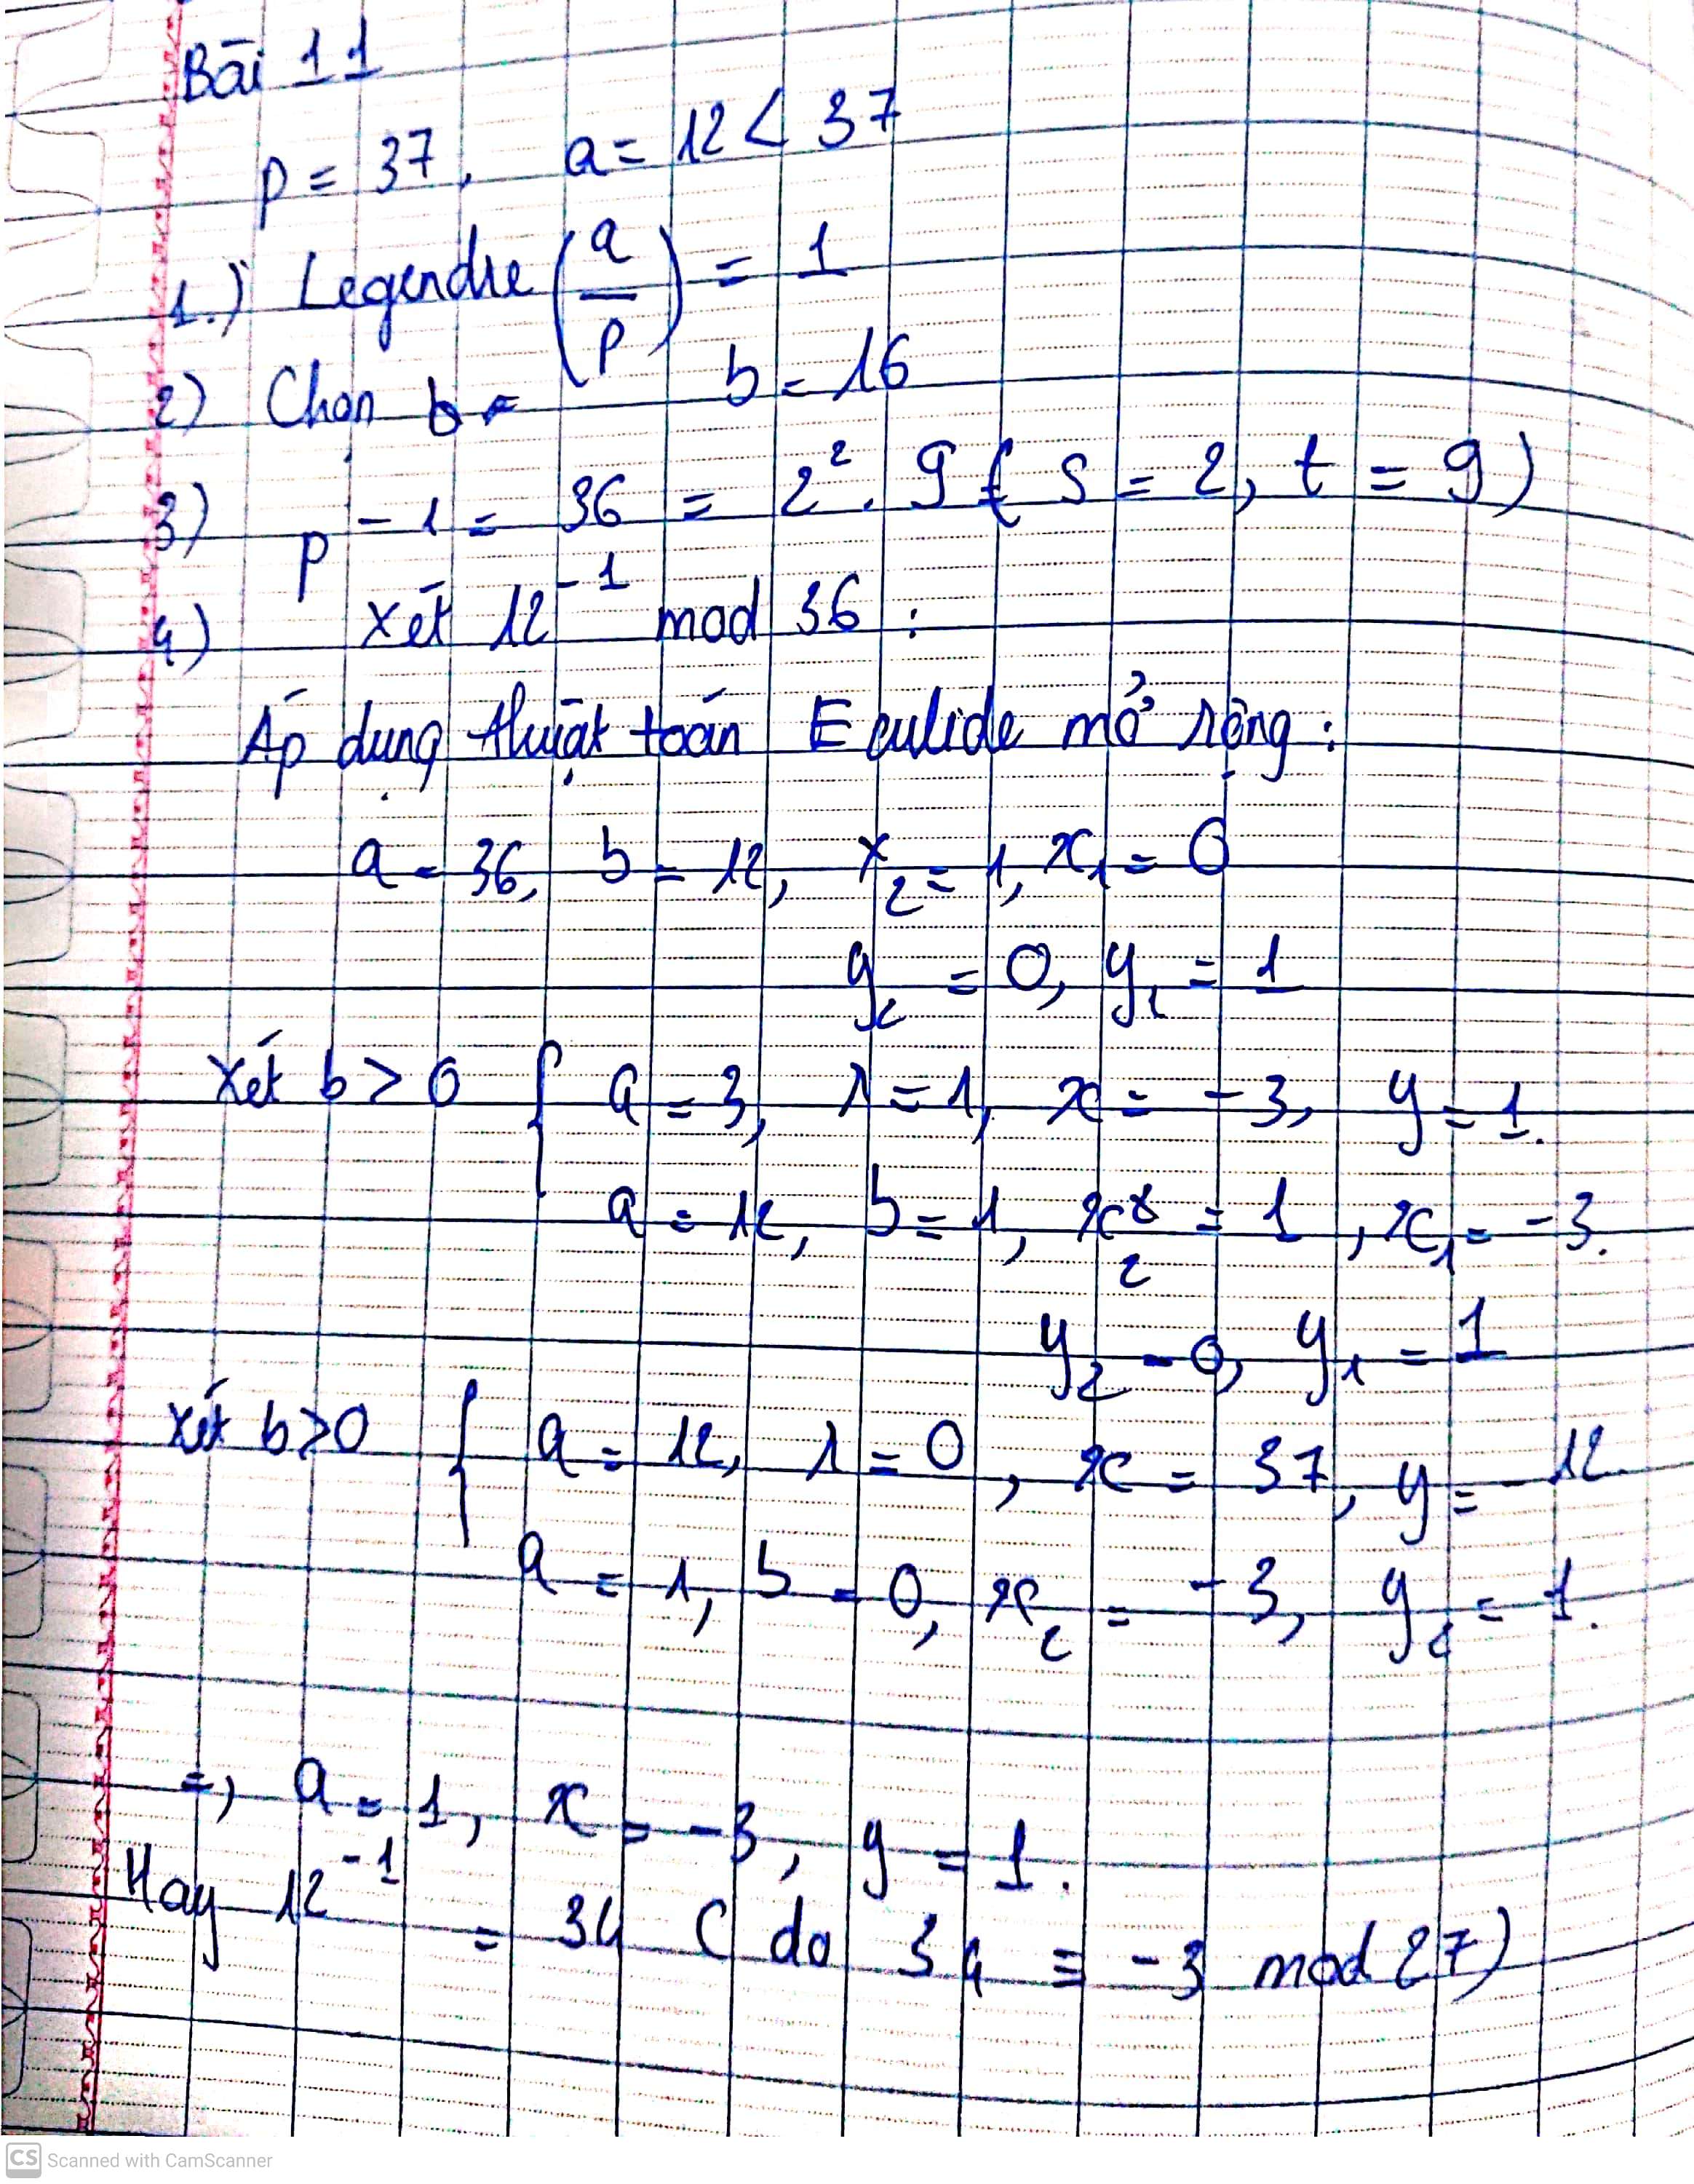 Bài 11
p = 37, a = 12 < 37
1.) Legendre (a/p) = 1
2) Chọn b = 16
3) p - 1 = 36 = 2². 9 ( s = 2, t = 9)
4) Xét 12⁻¹ mod 36 :
Áp dụng thuật toán Eculide mở rộng :
a = 36, b = 12, x₂ = 1, x₁ = 0
y₂ = 0, y₁ = 1
Xét b > 0 { q = 3, r = 1, x = -3, y = 1.
a = 12, b = 1, x₂ = 1, x₁ = -3.
y₂ = 0, y₁ = 1
Xét b > 0 { q = 12, r = 0, x = 37, y = -12.
a = 1, b = 0, x₂ = -3, y₂ = 1.
=) a = 1, x = -3, y = 1.
Hay 12⁻¹ = 34 ( do 34 ≡ -3 mod 27)
CS Scanned with CamScanner